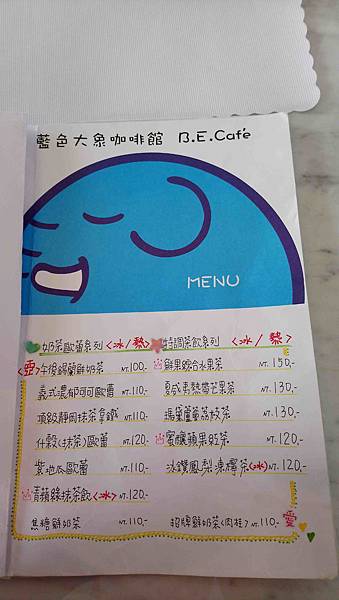 藍色大象咖啡館 B.E.Café
MENU
奶茶歐蕾系列 <冰/熱>
午後錫蘭鮮奶茶 NT.100.-
義式濃郁可可歐蕾 NT.110.-
頂級靜岡抹茶拿鐵 NT.110.-
什穀(抹茶)歐蕾 NT.120.-
紫地瓜歐蕾 NT.110.-
青蘋綠抹茶飲 <冰> NT.120.-
焦糖鮮奶茶 NT.110.-
特調茶飲系列 <冰/熱>
鮮果綜合水果茶 NT.150.-
夏威夷熱帶芒果茶 NT.130.-
瑪黛蘆薈荔枝茶 NT.130.-
蜜釀蘋果奶茶 NT.120.-
冰鑽鳳梨凍檸茶<冰> NT.120.-
招牌鮮奶茶<肉桂> NT.110.-